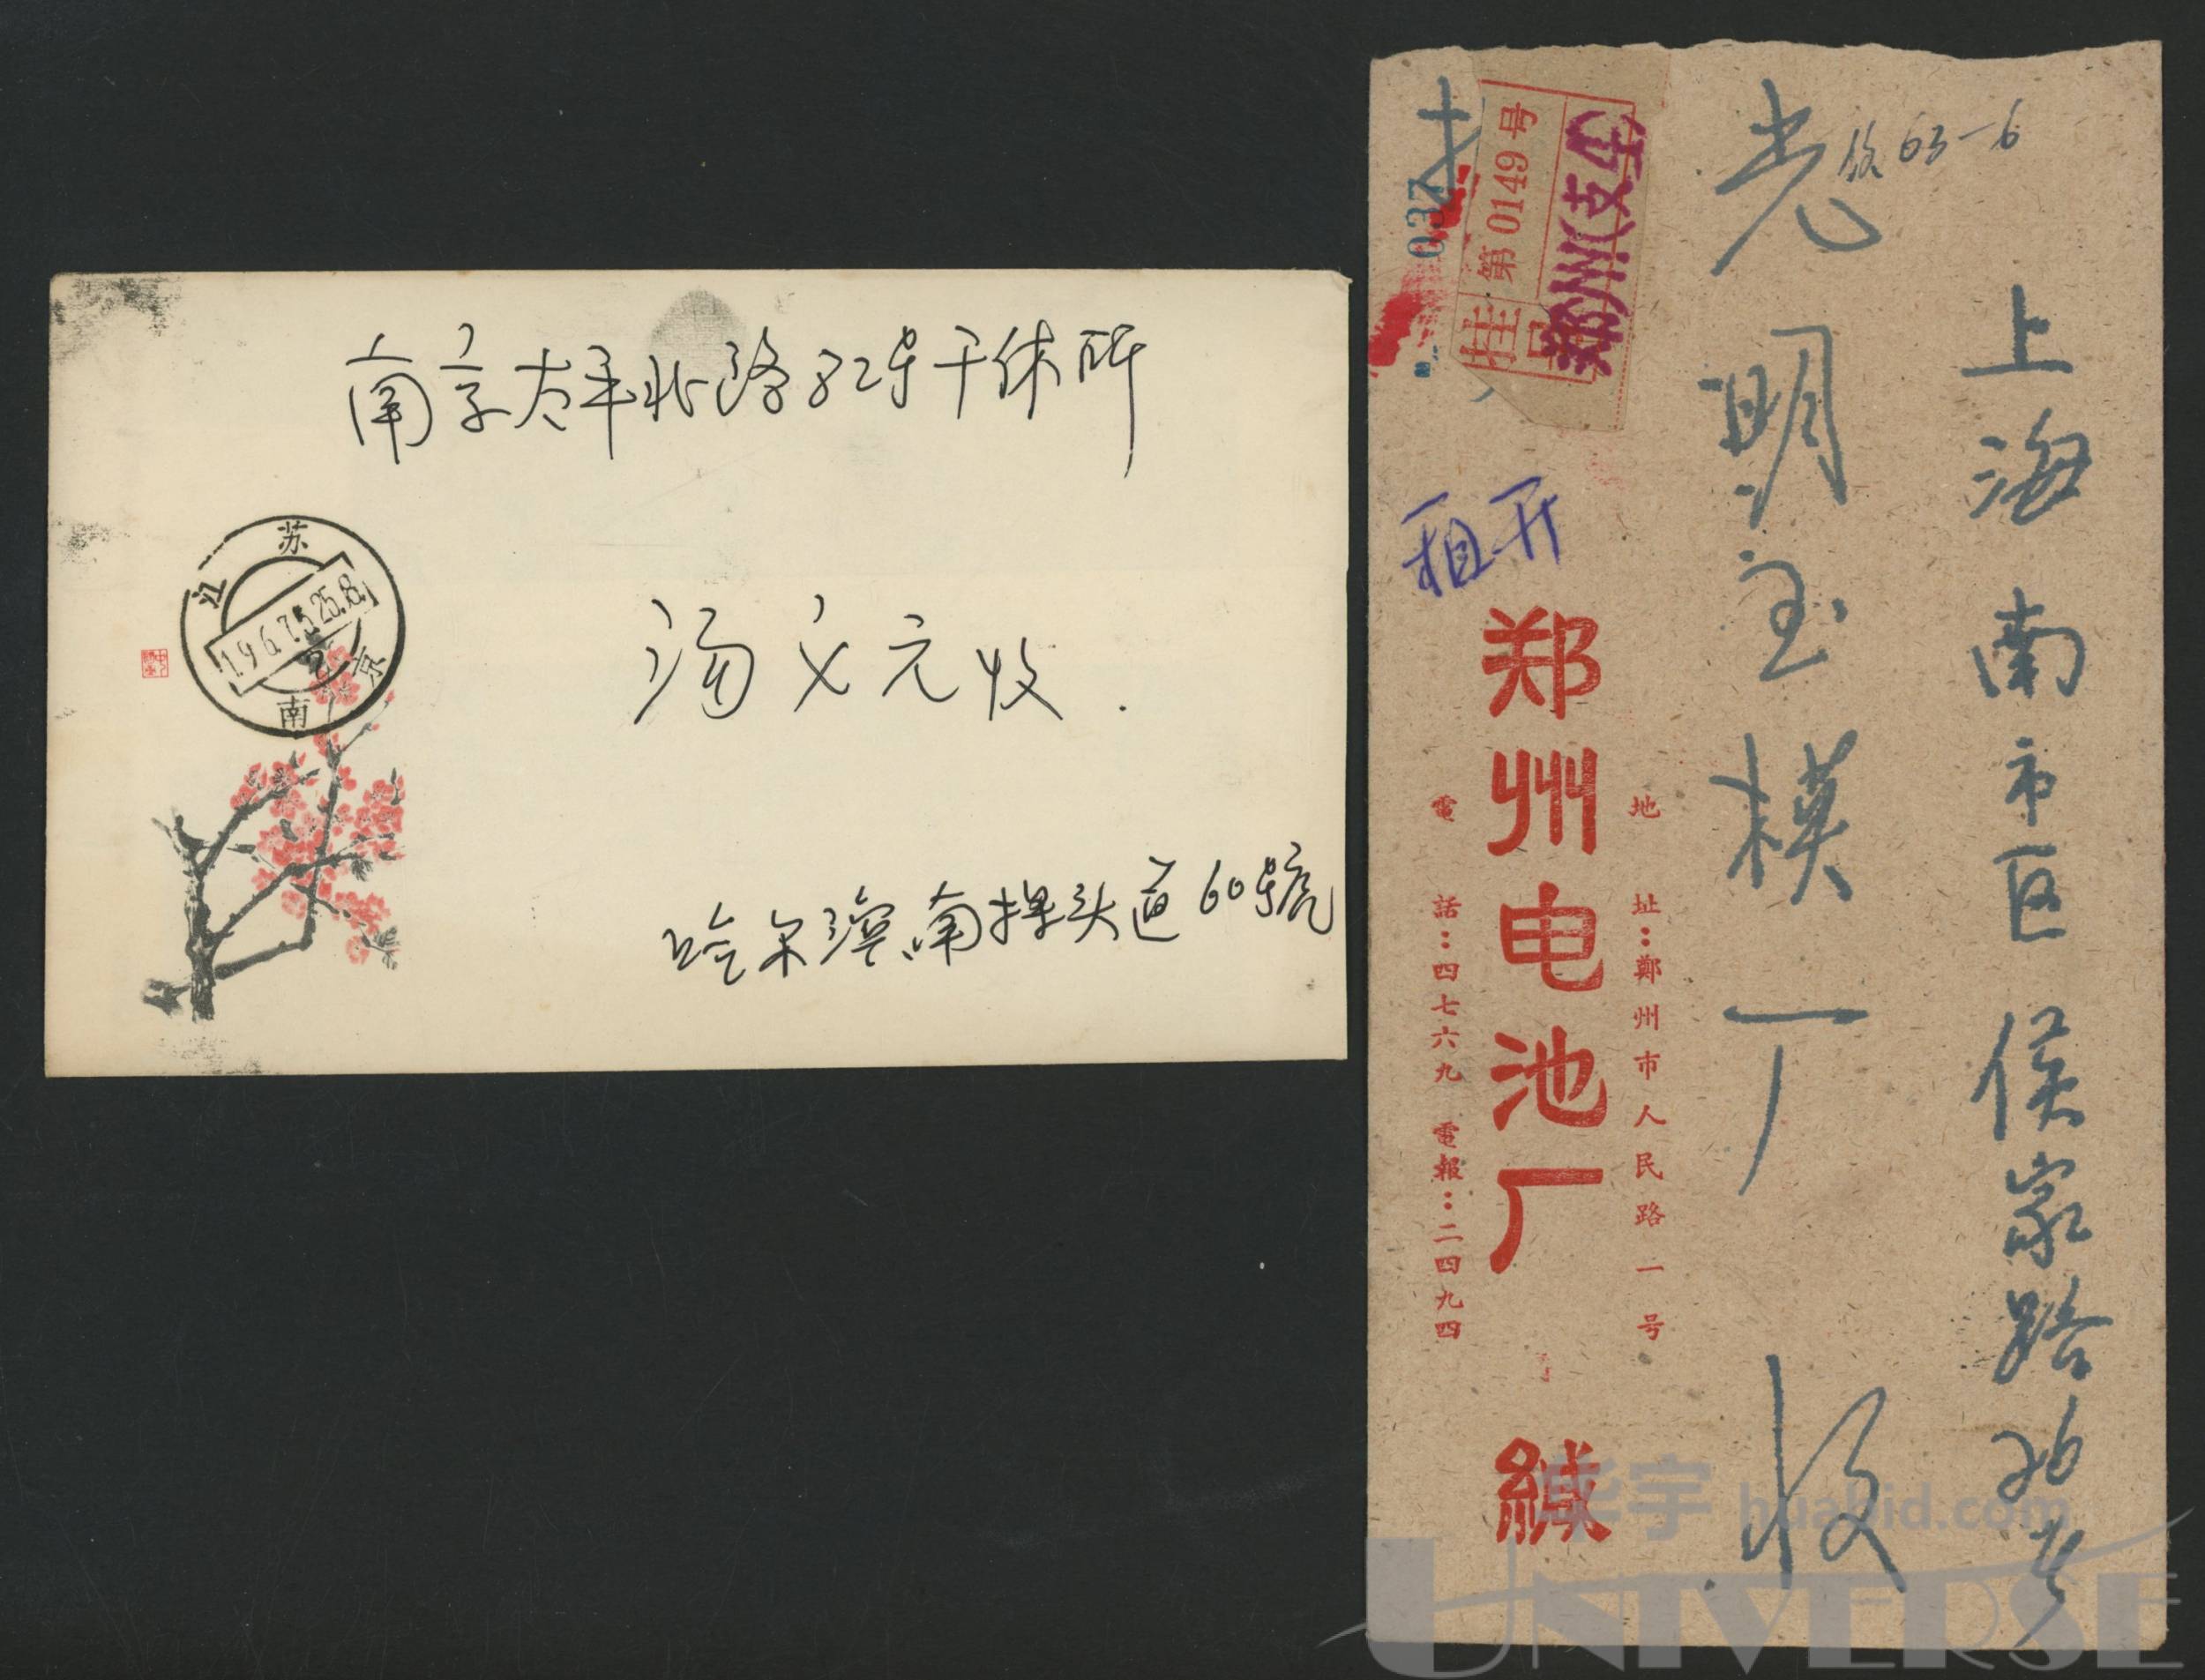 南京太平北路82号干休所
汤文元收.
哈尔滨南崗头道60号
苏
江
1967.5.25.8.
南
京
上海南市区侯家路26号
光明宝模厂 收
63-6
挂号
第0149号
郑州(支)
037
地址:鄭州市人民路一号
郑州电池厂 緘
電話:四七六九 電報:二四九四
华宇 huabid.com
UNIVERSE